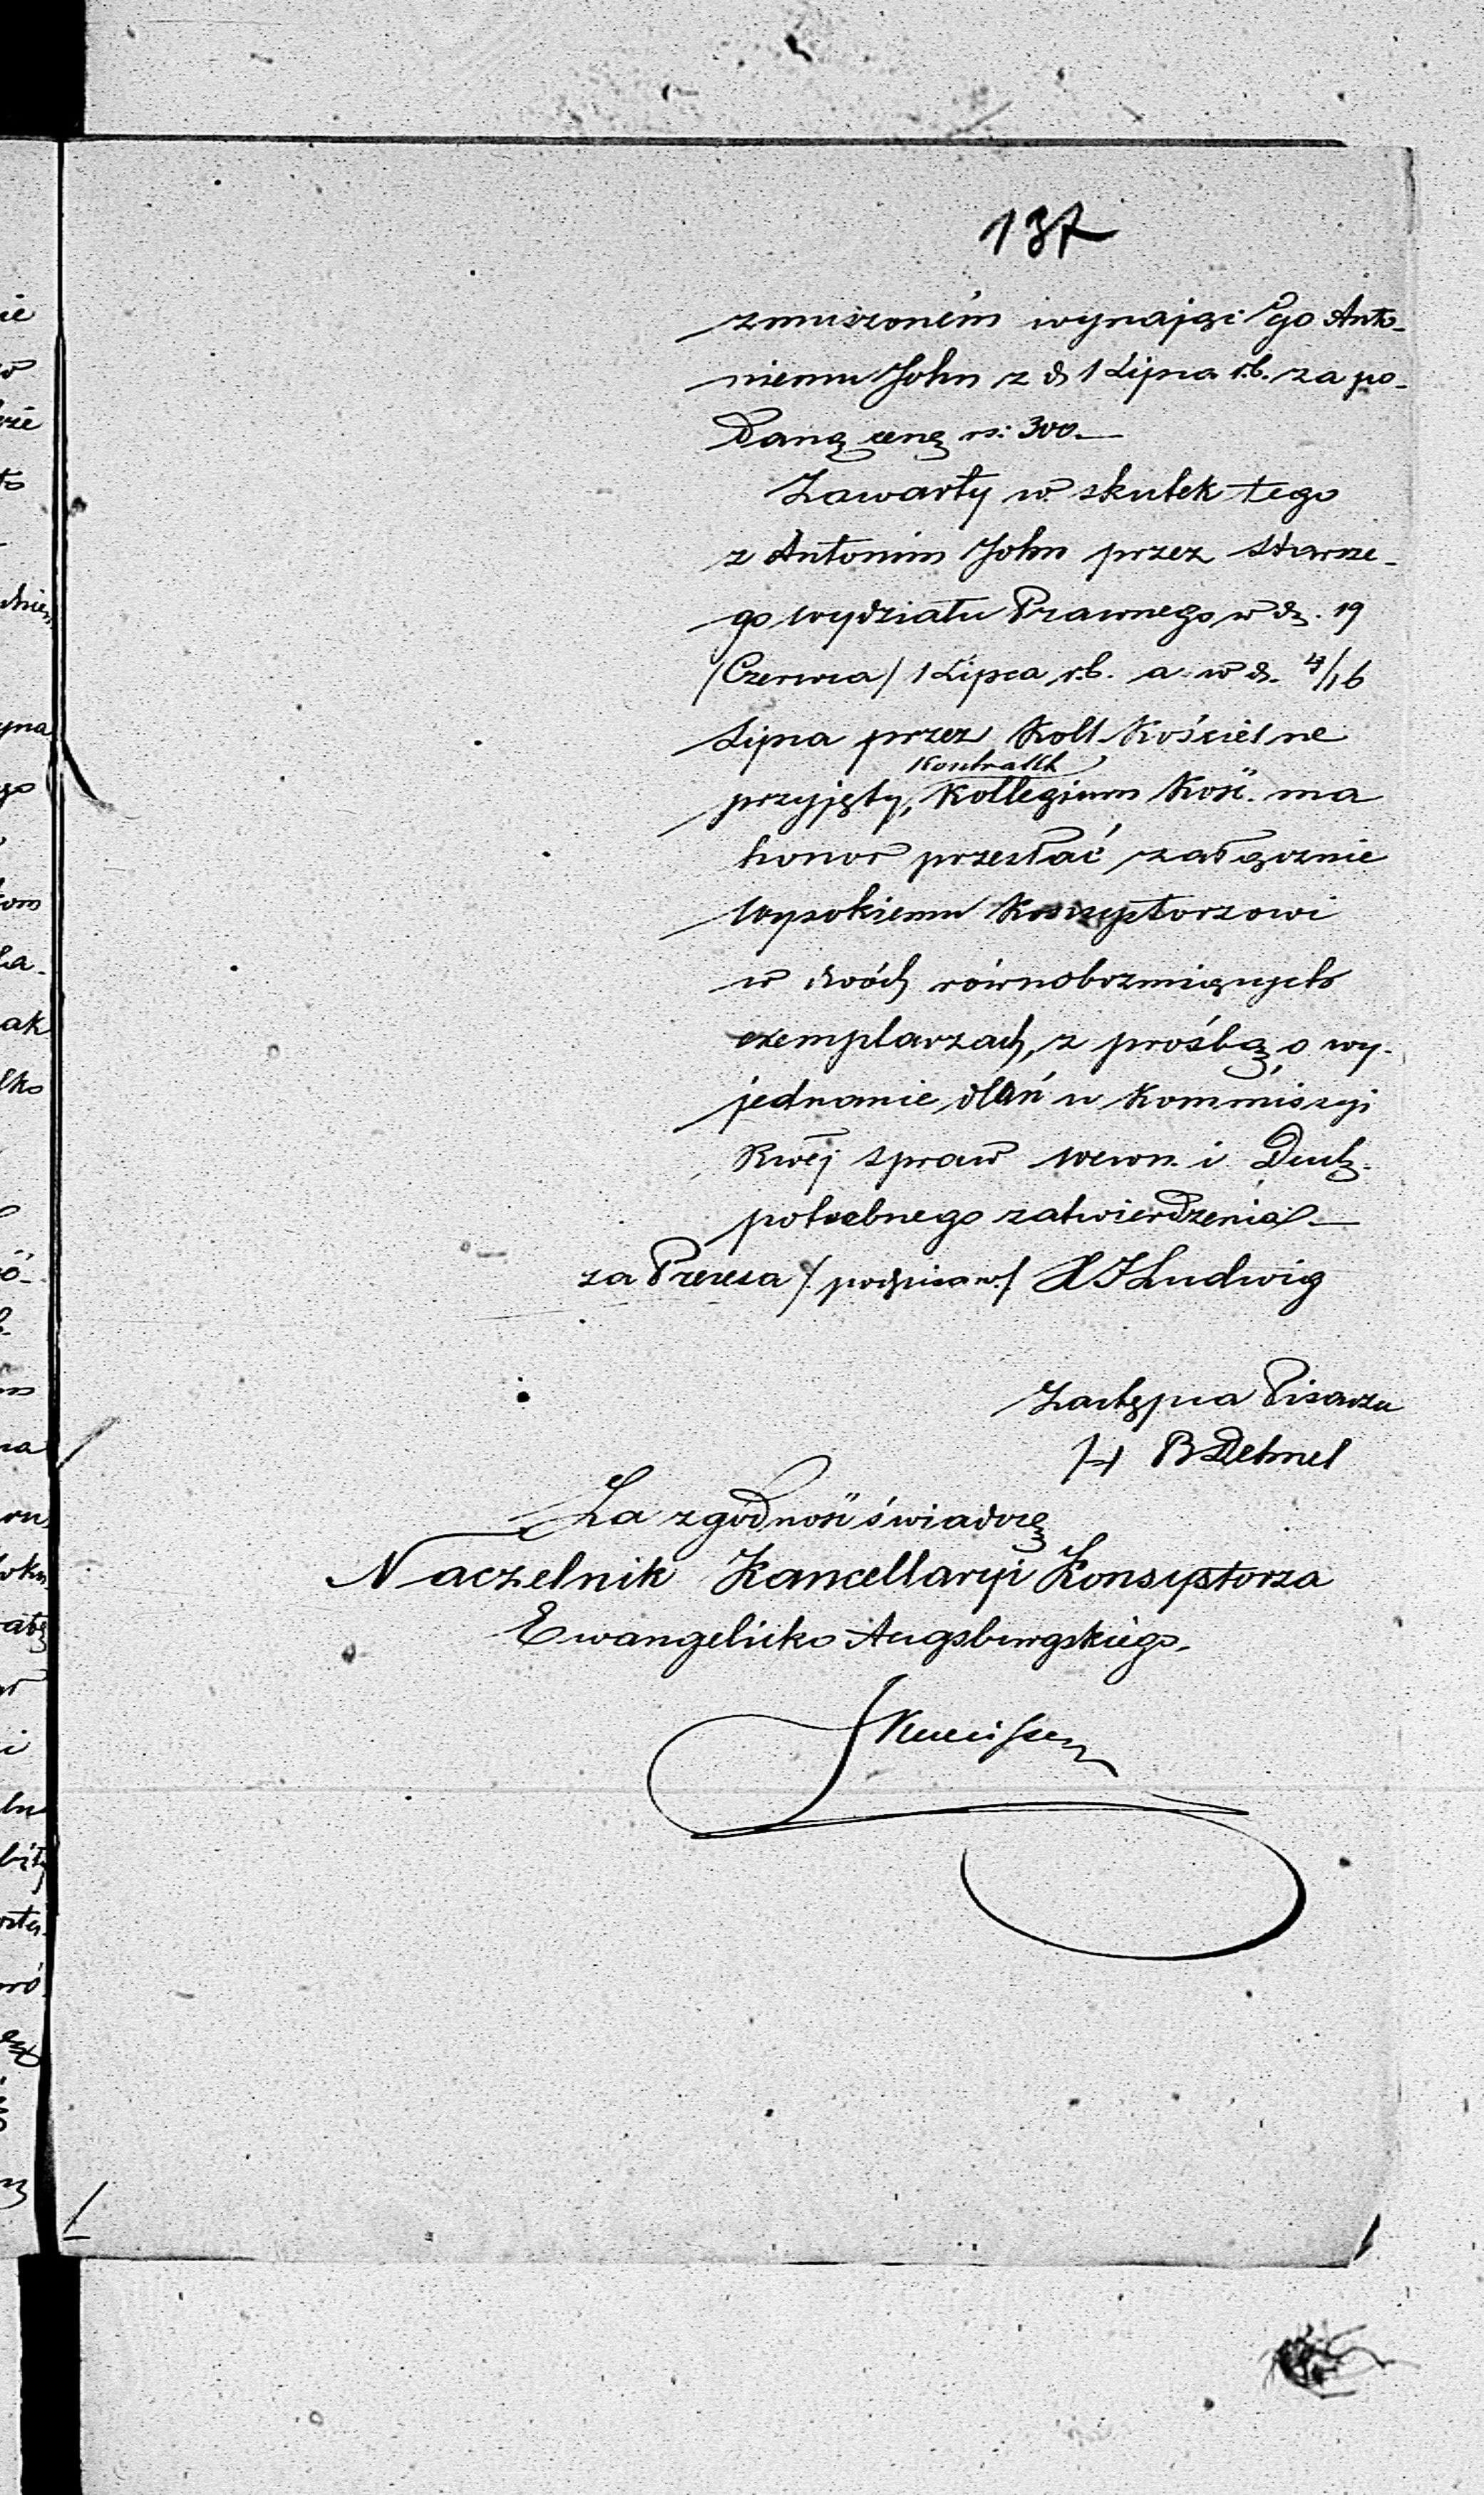 137
zmuszoném wynająć go Anto-
niemu John z d 1 Lipca r.b. za po-
daną cenę rs: 300.—
Zawarty w skutek tego
z Antonim John przez starsze-
go wydziału Prawnego w d. 19
/Czerwca/ 1 Lipca r.b. a w d. 4/16
Lipca przez Koll. Kościelne
kontrakt
przyjęty, Kollegium Kość. ma
honor przesłać załącznie
Wysokiemu Konsystorzowi
w dwóch równobrzmiących
exemplarzach, z prośbą o wy-
jednanie dlań w Kommissyi
Rwéj spraw wewn. i Duch.
potrzebnego zatwierdzenia.—
za Prezesa /podpisan./ H J Ludwig
Zastępca Pisarza
/–/ B Dehnel
Za zgodność świadczę
Naczelnik Kancellaryi Konsystorza
Ewangelicko Augsburgskiego.